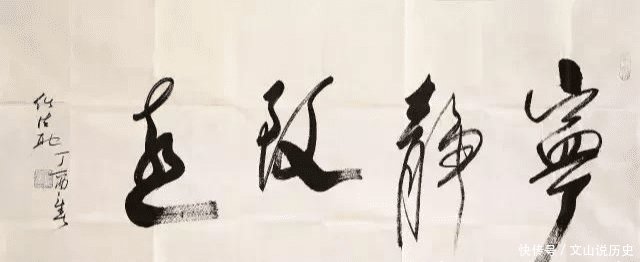 寧静致遠
丁酉
快传号／文山说历史